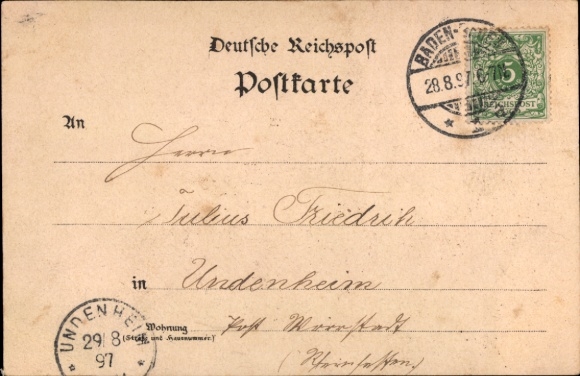 Deutsche Reichspost
Postkarte
BADEN-BADEN
28.8.97. 6-7N.
5
REICHSPOST
An
Herrn
Julius Friedrich
in
Undenheim
Wohnung
(Straße und Hausnummer)
Post Wörrstadt
(Rheinhessen)
UNDENHEIM
29/8
97